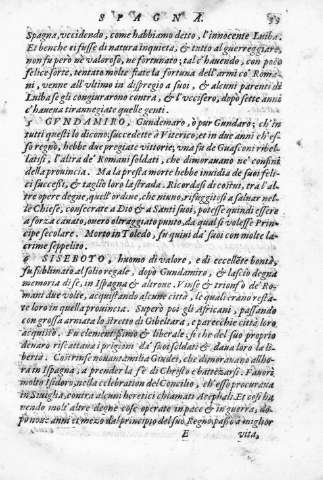 SPAGNA.
Spagna, uccidendo, come habbiamo detto, l'innocente Luiba.
Et benche ei fusse di natura inquieta, & tutto al guerreggiare,
non fu però nè valoroso, nè fortunato; tal c'hauendo, con poco
felice sorte, tentato molte fiate la fortuna dell'armi co' Roma-
ni, venne all'ultimo in dispregio a' suoi, & alcuni parenti di
Luiba se gli congiurarono contra, & l'uccisero, dopo sette anni
c'hauena tiranneggiate quelle genti.
GVNDAMIRO, Gundemaro, ò pur Gundaro; ch'in
tutti questi lo dicono; succedette à Viterico, et in due anni ch'es-
so regnò, hebbe due pregiate vittorie, una fu de' Guasconi ribel-
latisi, l'altra de' Romani soldati, che dimorauano ne' confini
della prouincia. Ma la presta morte hebbe inuidia de' suoi feli-
ci successi, & tagliò loro la strada. Ricordasi di costui, tra l'al-
tre opere degne, quell'ordine, che niuno, rifuggitosi a saluar nel-
le Chiese, consecrate a Dio & a Santi suoi, potesse quindi essere
a forza cauato, ouero oltraggiato punto, da qual si volesse Prin-
cipe secolare. Morto in Toledo, fu quiui da' suoi con molte la-
crime seppelito.
SISEBOTO, huomo di valore, e di eccellẽte bontà,
fu sublimato al solio regale, dopò Gundamiro, & lasciò degna
memoria di se, in Ispagna & altroue. Vinse & trionfò de' Ro-
mani due volte, acquistando alcune città, le quali erano resta-
te loro in quella prouincia. Superò poi gli Africani, passando
con grossa armata lo stretto di Gibeltara, e parecchie città loro
acquistò. Fu clementissimo & liberale, sì che del suo proprio
denaro riscattaua i prigioni da' suoi soldati & daua loro la li-
bertà. Costrinse nouantamilia Giudei, che dimorauano allho-
ra in Ispagna, a prender la fe' di Christo e battezzarsi. Fauorì
molto Isidoro, nella celebration del Concilio, ch'esso procuraua
in Siuiglia, contra alcuni heretici chiamati Acephali. Et così ha
uendo molt'altre degne cose operate in pace & in guerra, do-
pò noue anni et mezo dal principio del suo Regno, passò a miglior
E vita,